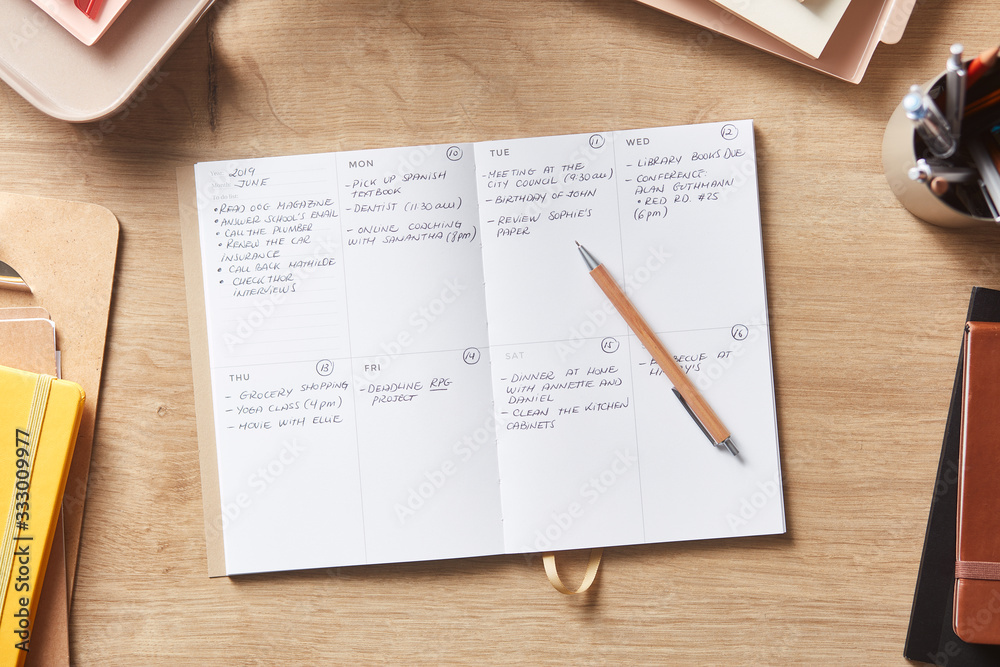 2019
JUNE
• READ OOG MAGAZINE
• ANSWER SCHOOL'S EMAIL
• CALL THE PLUMBER
• RENEW THE CAR
INSURANCE
• CALL BACK MATHILDE
• CHECK THOR
INTERVIEWS
MON 10
- PICK UP SPANISH
TEXTBOOK
- DENTIST (11:30 am)
- ONLINE COACHING
WITH SAMANTHA (8pm)
TUE 11
- MEETING AT THE
CITY COUNCIL (9:30 am)
- BIRTHDAY OF JOHN
- REVIEW SOPHIE'S
PAPER
WED 12
- LIBRARY BOOKS DUE
- CONFERENCE:
ALAN GUTHMANN
• RED RD. #25
(6pm)
THU 13
- GROCERY SHOPPING
- YOGA CLASS (4pm)
- MOVIE WITH ELLIE
FRI 14
- DEADLINE RPG
PROJECT
SAT 15
- DINNER AT HOME
WITH ANNETTE AND
DANIEL
- CLEAN THE KITCHEN
CABINETS
16
AT
Adobe Stock | #333009977